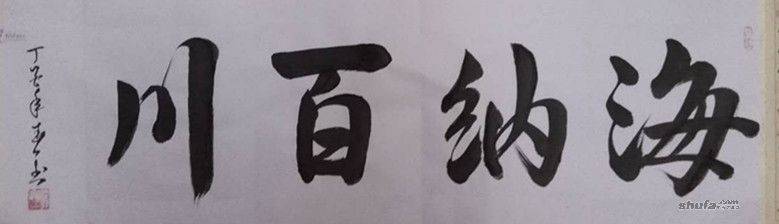 海纳百川
丁
shufa.com